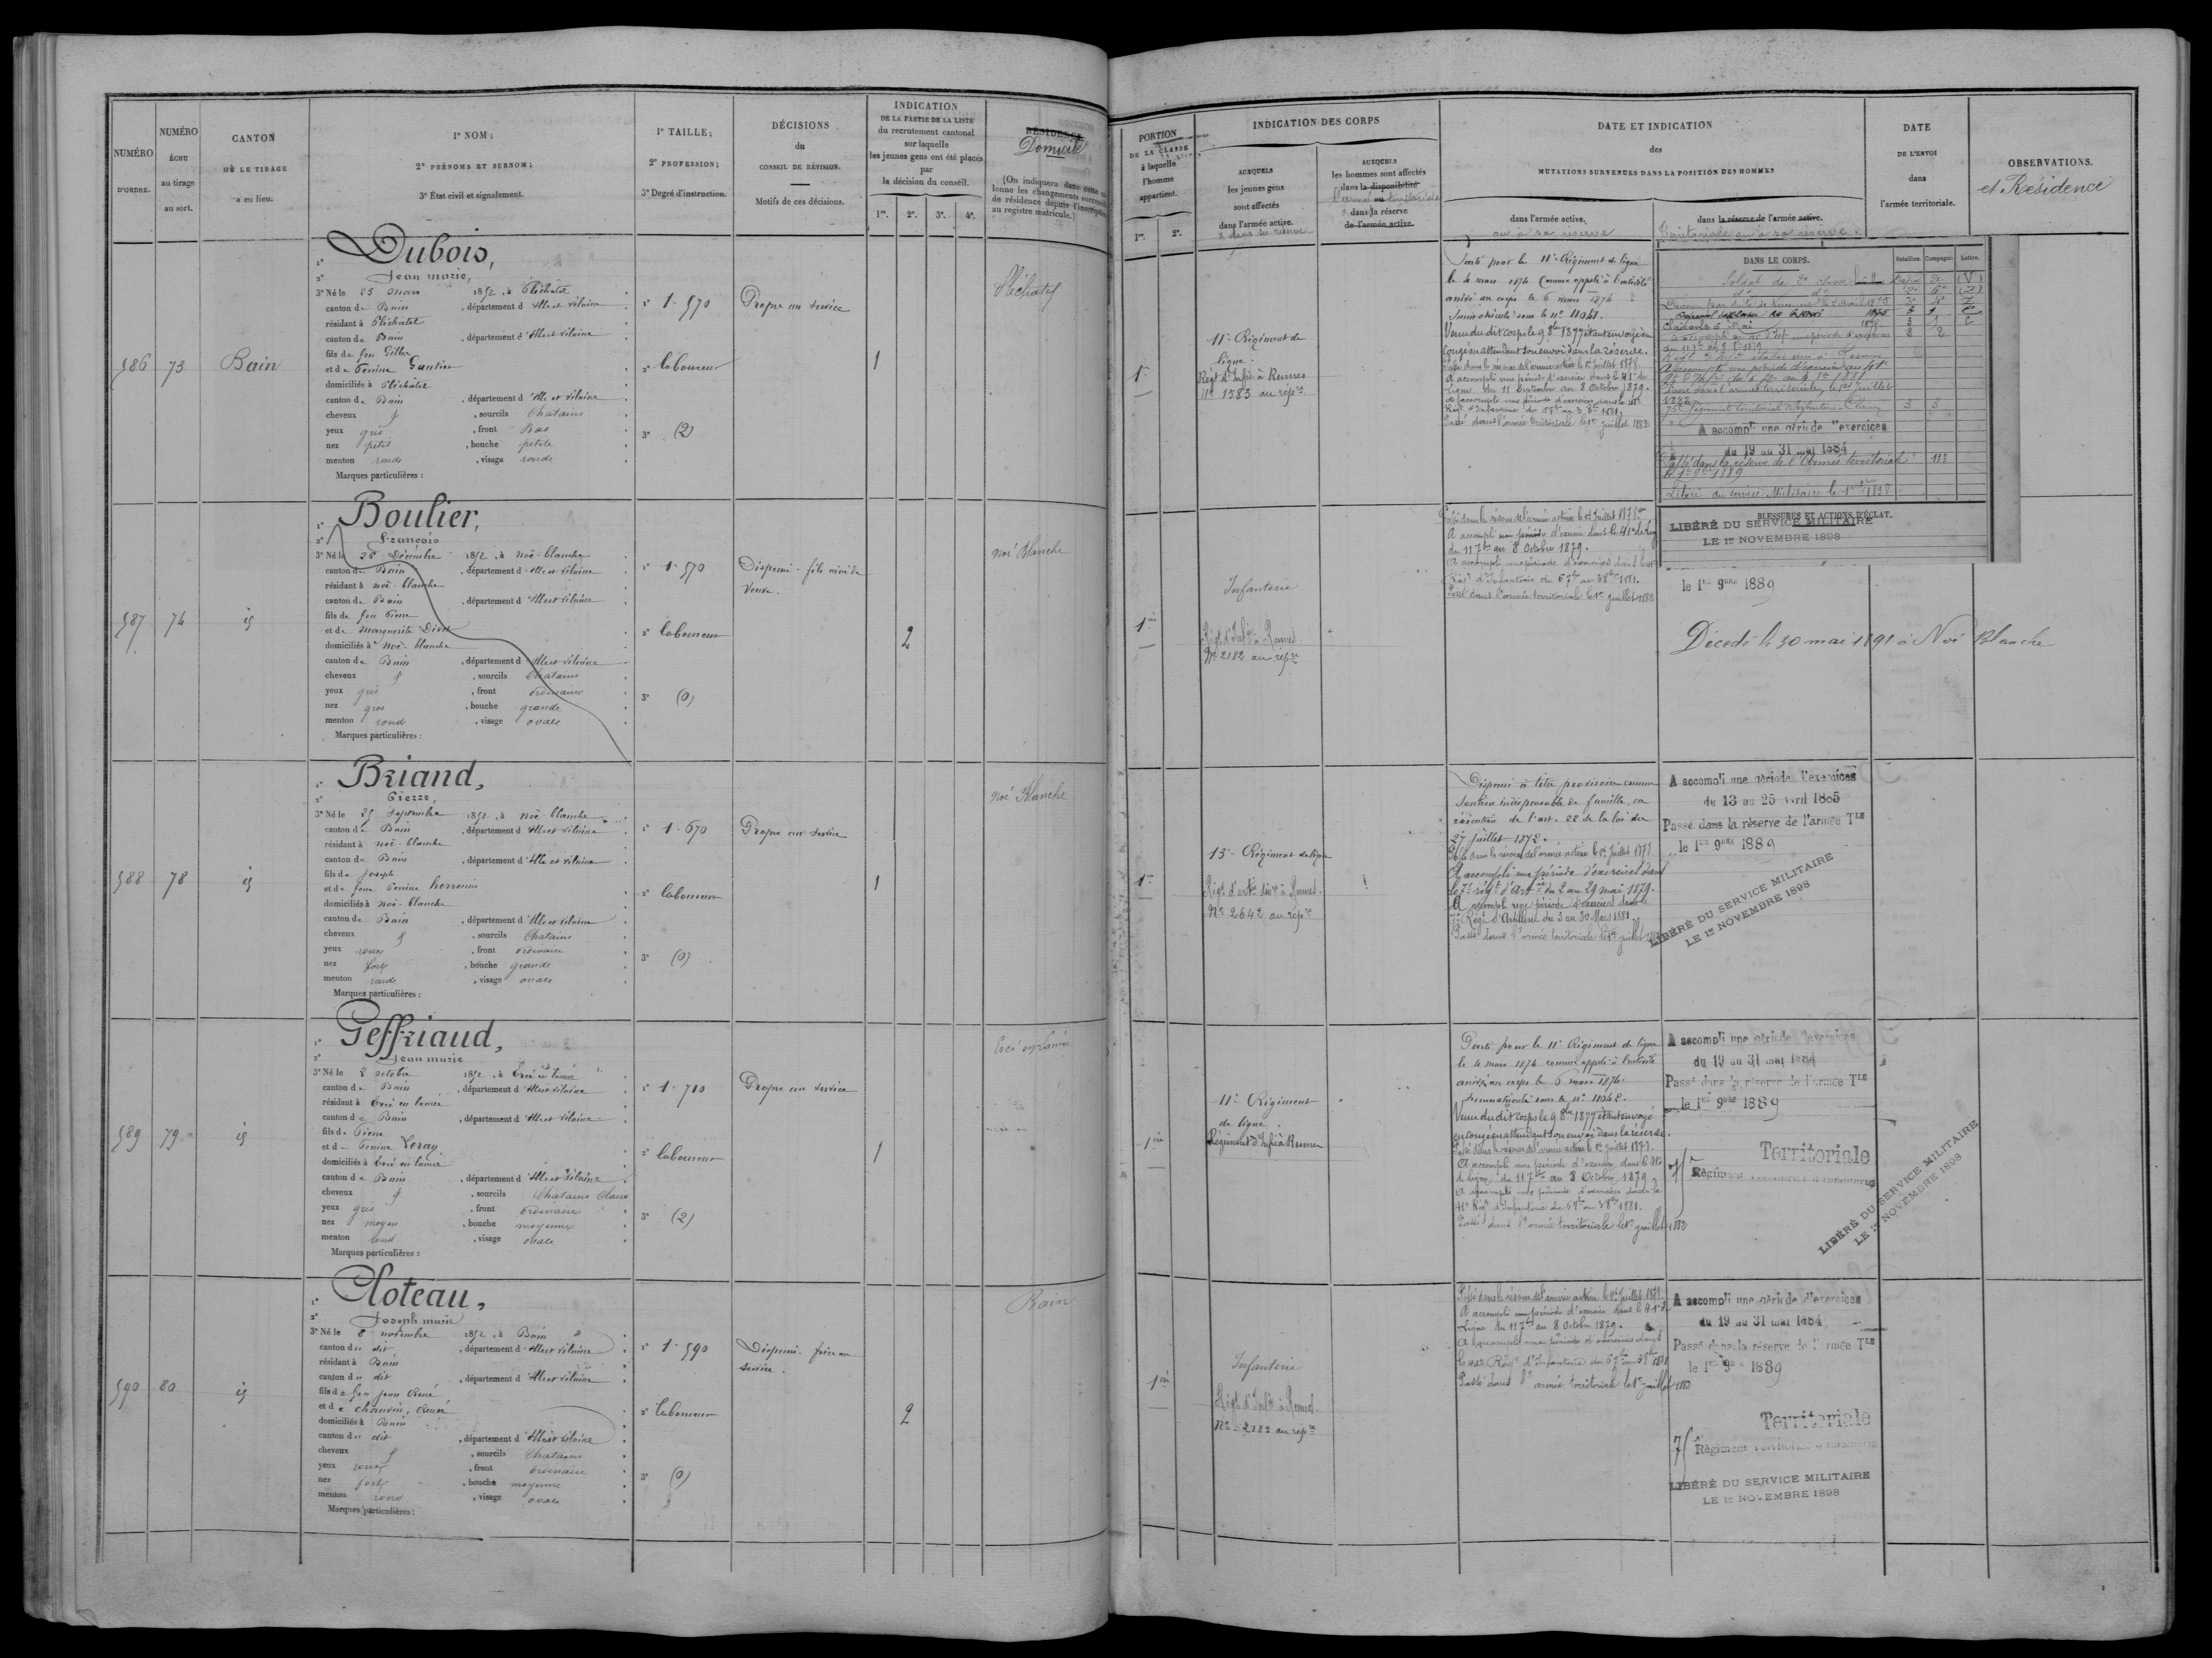 NUMÉRO D'ORDRE.
NUMÉRO ÉCHU au tirage au sort.
CANTON OÙ LE TIRAGE a eu lieu.
1° NOM;
2° PRÉNOMS ET SURNOM;
3° État civil et signalement.
1° TAILLE;
2° PROFESSION;
3° Degré d'instruction.
DÉCISIONS du CONSEIL DE RÉVISION.
Motifs de ces décisions.
INDICATION
DE LA PARTIE DE LA LISTE
du recrutement cantonal
sur laquelle
les jeunes gens ont été placés
par
la décision du conseil.
1re. 2e. 3e. 4e.
RÉSIDENCE
Domicile
PORTION
DE LA CLASSE
à laquelle
l'homme
appartient.
1re. 2e.
INDICATION DES CORPS
AUXQUELS
les jeunes gens
sont affectés
dans l'armée active.
AUXQUELS
les hommes sont affectés
dans la disponibilité
dans la réserve
de l'armée active.
DATE ET INDICATION
des
MUTATIONS SURVENUES DANS LA POSITION DES HOMMES
dans l'armée active.
ou à sa réserve
dans la réserve de l'armée active.
Territoriale ou à sa réserve
DATE
DE L'ENVOI
dans
l'armée territoriale.
OBSERVATIONS.
et Résidence
586 73 Bain
Dubois,
Jean marie,
3° Né le 25 mars 1852, à Pléchatel
canton de Bain, département d'Ille et Vilaine
résidant à Pléchatel
canton de Bain, département d'Ille et Vilaine
fils de feu Gilles
et de Perrine Gautier
domiciliés à Pléchatel
canton de Bain, département d'Ille et Vilaine
cheveux, sourcils Chatains
yeux gris, front Bas
nez petit, bouche petite
menton ronde, visage ronde
Marques particulières:
1° 1.570
2° laboureur
3° (2)
Propre au service
1
Pléchatel
1re
11e Régiment de
ligne.
Régt d'Infie à Rennes
No 1583 au répre
Parti pour le 11e Régiment de ligne
le 4 mars 1874 Comme appelé à l'activité
arrivé au corps le 6 mars 1874
Immatriculé sous le no 11041.
Venu du dit corps le 9 8bre 1877 étant envoyé en
congé en attendant son envoi dans la réserve.
Passé dans la réserve de l'armée active le 1er Juillet 1878.
A accompli une période d'exercices dans le 41e de
Ligne du 11 Septembre au 8 Octobre 1879.
A accompli une période d'exercices dans le 41e
Passé dans l'armée territoriale le 1er juillet 1882
DANS LE CORPS. Bataillon. Compagnie. Lettre.
Soldat de 2e classe
A accompli une période d'exercices
du 19 au 31 mai 1884
Passé dans la réserve de l'Armée territoriale
le 1er 9bre 1889
Libéré du service Militaire le 1er 9bre 1898
BLESSURES ET ACTIONS D'ÉCLAT.
587 74 id
Boulier,
François
3° Né le 25 Décembre 1852, à Noë-blanche
canton de Bain, département d'Ille et Vilaine
résidant à noë-blanche
canton de Bain, département d'Ille et Vilaine
fils de feu Pierre
et de Marguerite
domiciliés à Noë-blanche
canton de Bain, département d'Ille et Vilaine
cheveux, sourcils Chatains
yeux gris, front ordinaire
nez gros, bouche grande
menton rond, visage ovale
Marques particulières:
1° 1.570
2° laboureur
3° (0)
Dispensé - fils ainé de
Veuve.
2
Noé Blanche
1re
Infanterie
Régt d'Infie à Rennes
No 2182 au répre
Passé dans la réserve de l'armée active le 1er Juillet 1878.
A accompli une période d'exercices dans le 41e de Lig
du 11 7bre au 8 Octobre 1879.
A accompli une période d'exercices dans le 41e
Régt d'Infanterie du 6 7bre au 3 8bre 1881.
Passé dans l'armée territoriale le 1er juillet 1882
LIBÉRÉ DU SERVICE MILITAIRE
LE 1er NOVEMBRE 1898
le 1er 9bre 1889
Décédé le 30 mai 1891 à Noé Blanche
588 78 id
Briand,
Pierre,
3° Né le 25 Septembre 1852, à noë-blanche
canton de Bain, département d'Ille et Vilaine
résidant à noë-blanche
canton de Bain, département d'Ille et Vilaine
fils de Joseph
domiciliés à noë-blanche
canton de Bain, département d'Ille et Vilaine
cheveux, sourcils Chatains
yeux roux, front ordinaire
nez fort, bouche grande
menton ronde, visage ovale
Marques particulières:
1° 1.670
2° laboureur
3° (0)
Propre au service
1
Noé Blanche
1re
13e Régiment de ligne
Régt d'artie à Rennes.
No 2642 au répre
Dispensé à titre provisoire comme
soutien indispensable de famille, en
exécution de l'art. 22 de la loi du
27 Juillet 1872.
Passé dans la réserve de l'armée active le 1er Juillet 1878.
A accompli une période d'exercices dans
le 7e régt d'Artie du 2 au 29 mai 1879.
A accompli une période d'exercices dans le
Régt d'Artillerie du 3 au 30 Mars 1881.
Passé dans l'armée territoriale le 1er juillet 1882
A accompli une période d'exercices
du 13 au 25 avril 1885
Passé dans la réserve de l'armée TLE
le 1er 9bre 1889
LIBÉRÉ DU SERVICE MILITAIRE
LE 1er NOVEMBRE 1898
589 79 id
Geffriaud,
Jean marie
3° Né le 2 octobre 1852, à Ercé en lamée
canton de Bain, département d'Ille et Vilaine
résidant à Ercé en lamée
canton de Bain, département d'Ille et Vilaine
fils de Pierre
et de Perrine Leray
domiciliés à Ercé en lamée
canton de Bain, département d'Ille et Vilaine
cheveux, sourcils Chatains Clairs
yeux gris, front ordinaire
nez moyen, bouche moyenne
menton rond, visage ovale
Marques particulières:
1° 1.710
2° laboureur
3° (2)
Propre au service
1
Ercé en Lamée
1re
11e Régiment
de ligne.
Régiment d'Infie à Rennes
Parti pour le 11e Régiment de ligne
le 4 mars 1874 comme appelé à l'activité
arrivé au corps le 6 mars 1874.
Immatriculé sous le no 11042.
Venu du dit corps le 9 8bre 1877 étant envoyé
en congé en attendant son envoi dans la réserve.
Passé dans la réserve de l'armée active le 1er Juillet 1878.
A accompli une période d'exercices dans le 41e
de ligne du 11 7bre au 8 Octobre 1879.
A accompli une période d'exercices dans le
41e Régt d'Infanterie du 6 7bre au 3 8bre 1881.
Passé dans l'armée territoriale le 1er juillet 1882
A accompli une période d'exercices
du 19 au 31 mai 1884
Passé dans la réserve de l'armée TLE
le 1er 9bre 1889
Territoriale
75 Régiment
LIBÉRÉ DU SERVICE MILITAIRE
LE 1er NOVEMBRE 1898
590 80 id
Cloteau,
Joseph marie
3° Né le 8 novembre 1852, à Bain
canton du dit, département d'Ille et Vilaine
résidant à Bain
canton du dit, département d'Ille et Vilaine
fils de feu Jean René
et de chauvin, Renée
domiciliés à Bain
canton du dit, département d'Ille et Vilaine
cheveux, sourcils Chatains
yeux roux, front ordinaire
nez fort, bouche moyenne
menton rond, visage ovale
Marques particulières:
1° 1.590
2° laboureur
3° (0)
Dispensé - frère au
service.
2
Bain
1re
Infanterie
Régt d'Infie à Rennes.
No 2183 au répre
Passé dans la réserve de l'armée active le 1er Juillet 1878.
A accompli une période d'exercices dans le 41e de
Ligne du 11 7bre au 8 Octobre 1879.
A accompli une période d'exercices dans
le 41e Régt d'Infanterie du 6 7bre au 3 8bre 1881
Passé dans l'armée territoriale le 1er juillet 1882
A accompli une période d'exercices
du 19 au 31 mai 1884
Passé dans la réserve de l'armée TLE
le 1er 9bre 1889
Territoriale
75 Régiment Territorial d'Infanterie
LIBÉRÉ DU SERVICE MILITAIRE
LE 1er NOVEMBRE 1898